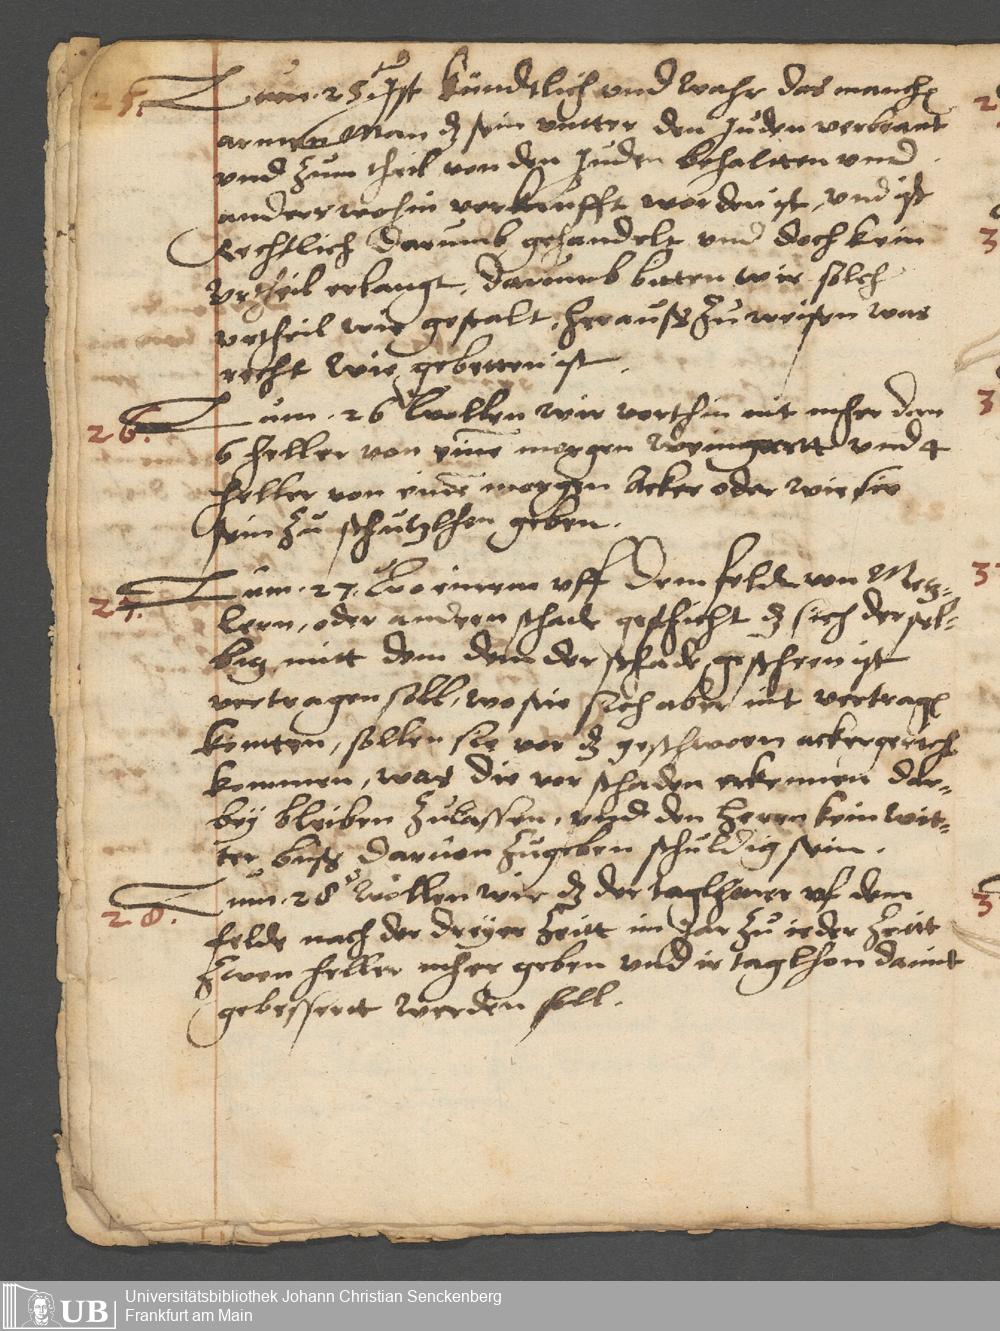 25. Zum .25. Ist kündtlich und wahr das manch
armen Man dz sein vntter den Juden verbrant
vnd zum theil von den Juden behaltten vnd
anderswohin verkaufft worden ist, vnd ist
Rechtlich darumb gehandelt vnd doch kein
Vrtheil erlangt, darumb bitten wir solch
vrtheil wie gestalt, herauß zu weisen was
recht wie gebetten ist.
26. Zum .26. Wollen wir vorthin nit mher dan
6 heller von eine morgen Weingartt vnd 4
heller von eine morgen Acker oder wie sie
sein zu schutzlhon geben.
27. Zum .27. Wo einem vff dem felde von Metz-
lern, oder andern schade geschicht dz sich der sel-
big mitt dem dem der schade gescheen ist
vertragen soll, wo sie sich aber nit vertrag
kontten, sollen sie vor dz geschworn ackergericht
kommen, was die vor schaden erkennen dar-
bey bleiben zulassen, vnd den herrn kein wit-
ter buß daruon zugeben schuldig sein.
28. Zum .28. Wollen wir dz der taglhoner vf dem
felde nach der dreyer Zeitt im Jar zu ieder Zeitt
Zwen heller mher geben vnd ir taglhon damit
gebessertt werden soll.
UB
Universitätsbibliothek Johann Christian Senckenberg
Frankfurt am Main